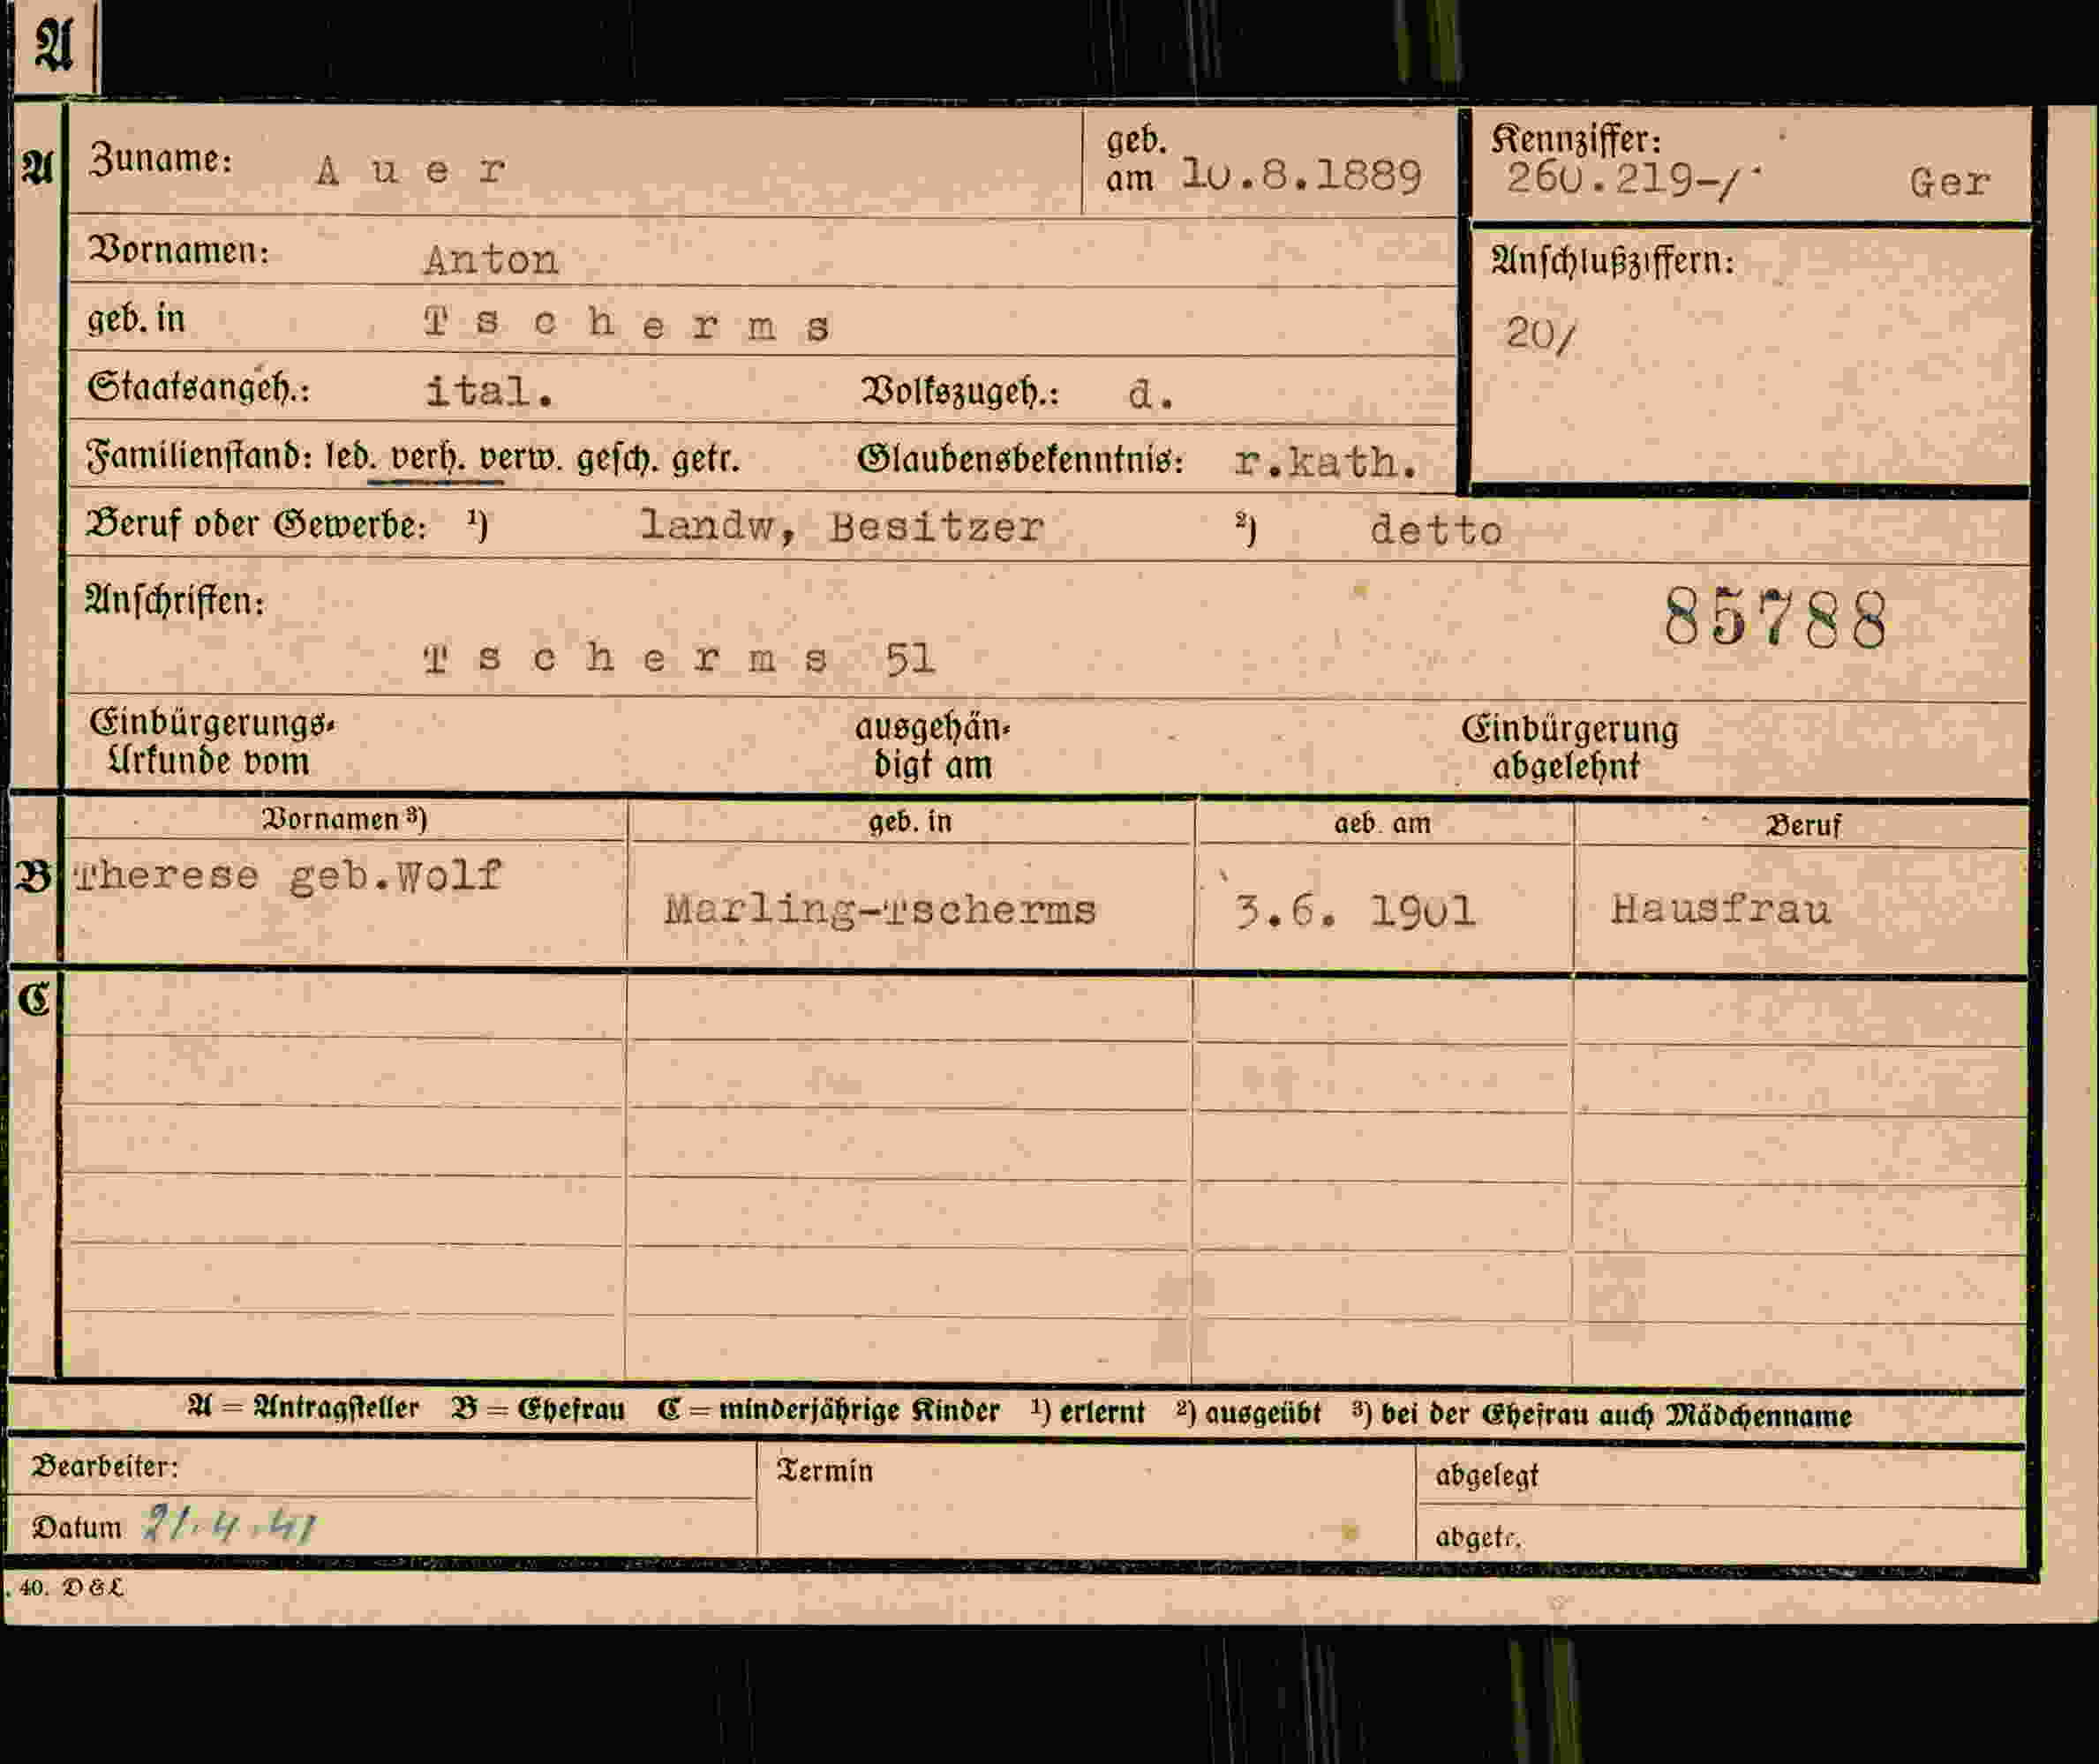 A
A Zuname: Auer geb. am 10.8.1889 Kennziffer: 260.219-/ Ger
Vornamen: Anton Anschlußziffern:
geb. in Tscherms 20/
Staatsangeh.: ital. Volkszugeh.: d.
Familienstand: led. verh. verw. gesch. getr. Glaubensbekenntnis: r.kath.
Beruf oder Gewerbe: 1) landw, Besitzer 2) detto
Anschriften: 85788
Tscherms 51
Einbürgerungs- ausgehän- Einbürgerung
Urkunde vom digt am abgelehnt
Vornamen 3) geb. in geb. am Beruf
B Therese geb.Wolf Marling-Tscherms 3.6. 1901 Hausfrau
C
A = Antragsteller B = Ehefrau C = minderjährige Kinder 1) erlernt 2) ausgeübt 3) bei der Ehefrau auch Mädchenname
Bearbeiter: Termin abgelegt
Datum 21.4.41 abgetr.
. 40. D & L